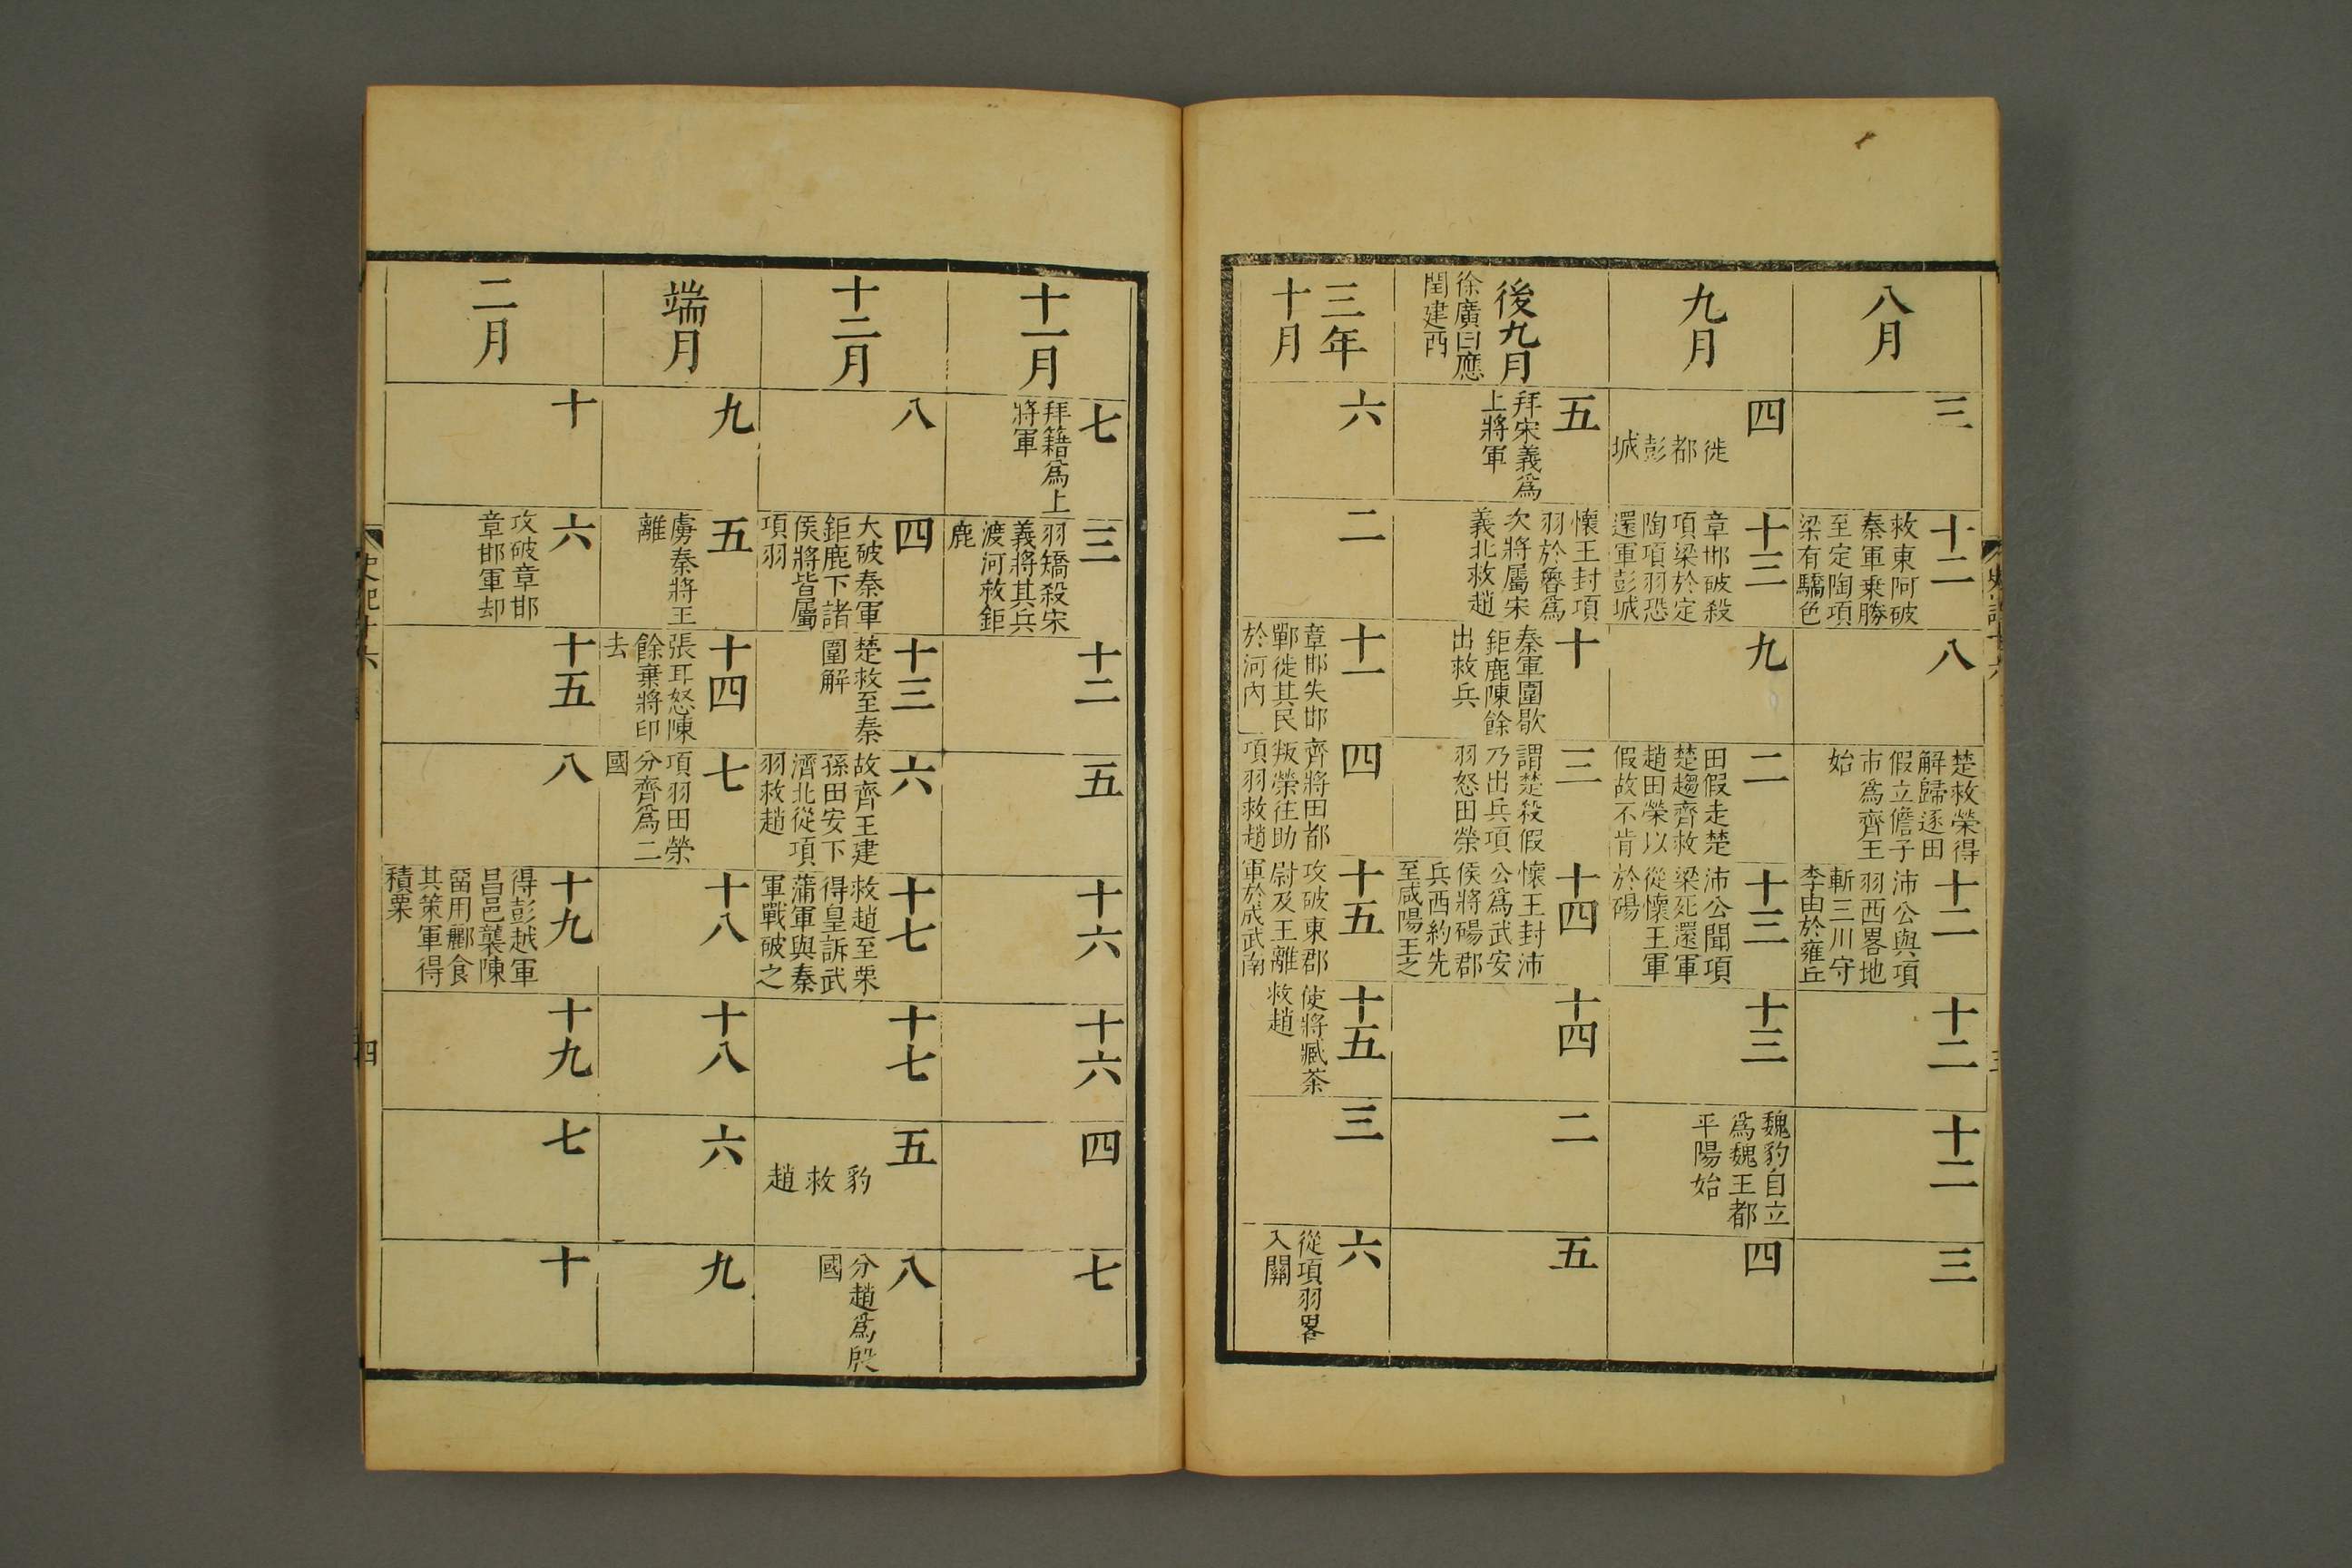 八月
三
十二
救東阿破
秦軍乗勝
至定陶項
梁有驕色
八
楚救榮得
解歸逐田
假立儋子
市爲齊王
始
十二
沛公與項
羽西畧地
斬三川守
李由於雍丘
十二
十二
三
九月
四
徙
都
彭
城
十三
章邯破殺
項梁於定
陶項羽恐
還軍彭城
九
二
田假走楚
楚趨齊救
趙田榮以
假故不肯
十三
沛公聞項
梁死還軍
從懷王軍
於碭
十三
魏豹自立
爲魏王都
平陽始
四
後九月
徐廣曰應
閏建酉
五
拜宋義爲
上將軍
懷王封項
羽於魯爲
次將屬宋
義北救趙
十
秦軍圍歇
鉅鹿陳餘
出救兵
三
謂楚殺假
乃出兵項
羽怒田榮
十四
懷王封沛
公爲武安
侯將碭郡
兵西約先
至咸陽王之
十四
二
五
三年
十月
六
二
十一
章邯失邯
鄲徙其民
於河內
四
齊將田都
叛榮往助
項羽救趙
十五
攻破東郡
尉及王離
軍於成武南
十五
使將臧荼
救趙
三
六
從項羽畧
入關
十一月
七
拜籍爲上
將軍
三
羽矯殺宋
義將其兵
渡河救鉅
鹿
十二
五
十六
十六
四
七
十二月
八
四
大破秦軍
鉅鹿下諸
侯將皆屬
項羽
十三
楚救至秦
圍解
六
故齊王建
孫田安下
濟北從項
羽救趙
十七
救趙至栗
得皇訢武
蒲軍與秦
軍戰破之
十七
五
豹
救
趙
八
分趙爲殷
國
端月
九
五
虜秦將王
離
十四
張耳怒陳
餘棄將印
去
七
項羽田榮
分齊爲二
國
十八
十八
六
九
二月
十
六
攻破章邯
章邯軍却
十五
八
十九
得彭越軍
昌邑襲陳
留用酈食
其策軍得
積粟
十九
七
十
史記十六
四